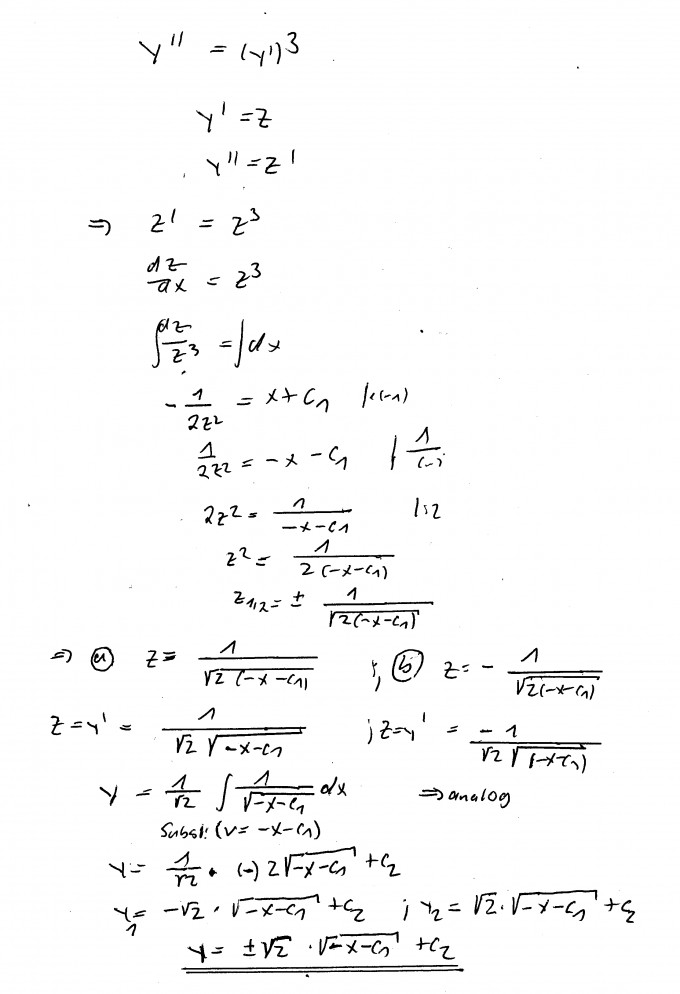 y'' = (y')³
y' = z
y'' = z'
⇒ z' = z³
dz/dx = z³
∫ dz/z³ = ∫ dx
- 1/(2z²) = x + C₁ |·(-1)
1/(2z²) = -x - C₁ | 1/(...)
2z² = 1/(-x-C₁) |:2
z² = 1/(2(-x-C₁))
z₁,₂ = ± 1/√(2(-x-C₁))
⇒ ⓐ z = 1/√(2(-x-C₁)) ; ⓑ z = - 1/√(2(-x-C₁))
z = y' = 1/(√2 √(-x-C₁)) ; z = y' = -1/(√2 √(-x-C₁))
y = 1/√2 ∫ 1/√(-x-C₁) dx ⇒ analog
Subst: (v = -x-C₁)
y = 1/√2 · (-) 2√(-x-C₁) + C₂
y₁ = -√2 · √(-x-C₁) + C₂ ; y₂ = √2 · √(-x-C₁) + C₂
y = ±√2 · √(-x-C₁) + C₂